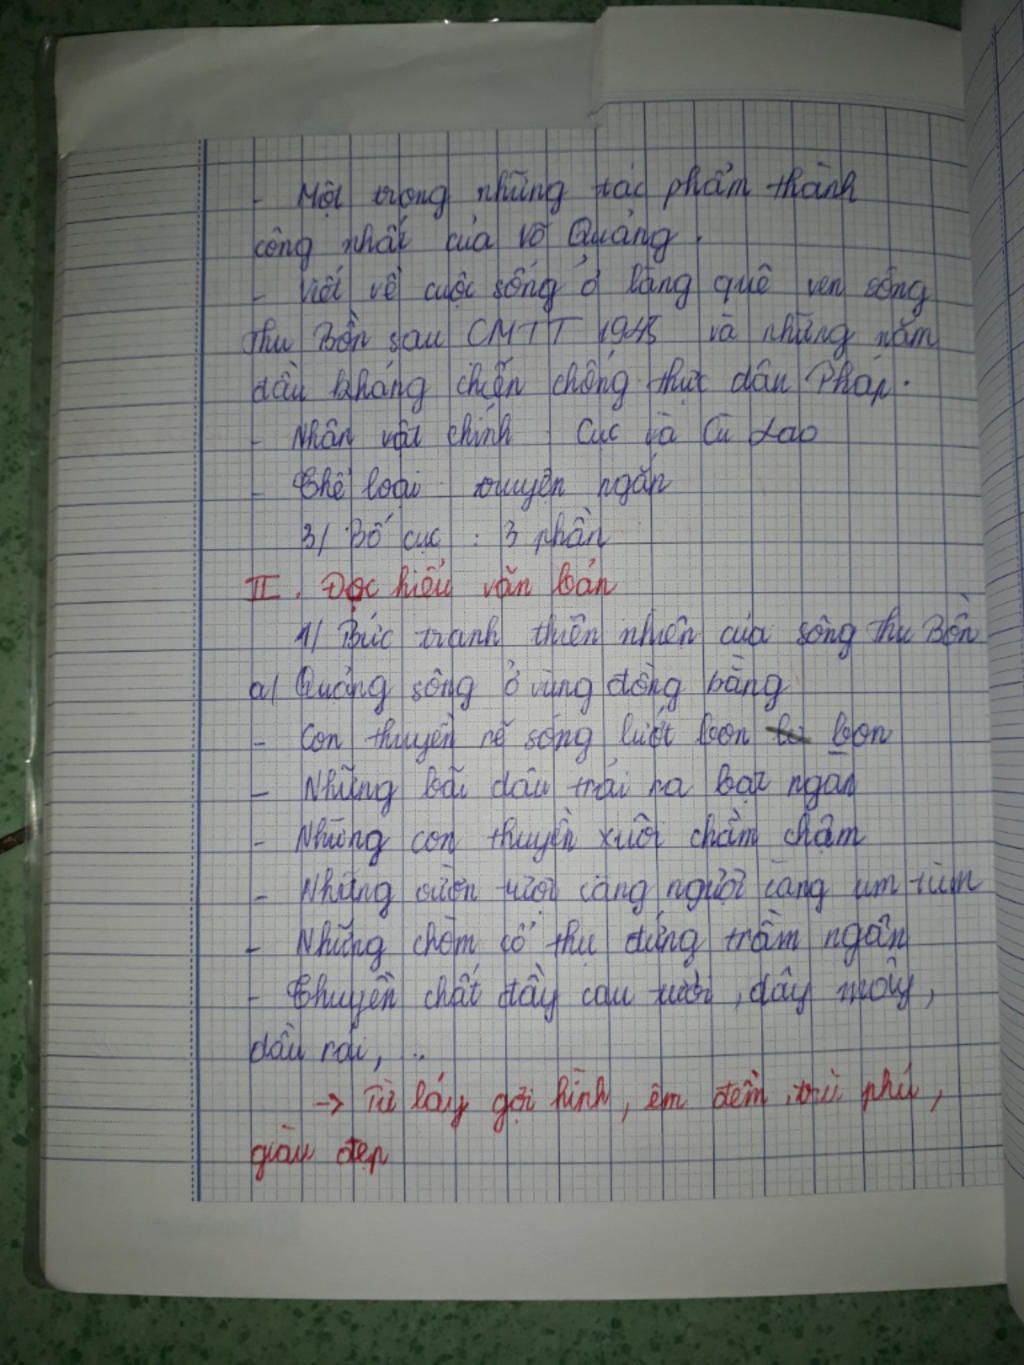 - Một trong những tác phẩm thành
công nhất của Võ Quảng.
- Viết về cuộc sống ở làng quê ven sông
Thu Bồn sau CMTT 1945 và những năm
đầu kháng chiến chống thực dân Pháp.
- Nhân vật chính : Cục và Cù Lao
- Thể loại : truyện ngắn
3/ Bố cục : 3 phần
II. Đọc hiểu văn bản
1/ Bức tranh thiên nhiên của sông Thu Bồn
a/ Quãng sông ở vùng đồng bằng
- Con thuyền rẽ sóng lướt bon bon
- Những bãi dâu trải ra bạt ngàn
- Những con thuyền xuôi chầm chậm
- Những vườn tược càng ngược càng um tùm
- Những chòm cổ thụ đứng trầm ngâm
- Thuyền chất đầy cau tươi, dây mây,
dầu rái, ...
→ Từ láy gợi hình, êm đềm, trù phú,
giàu đẹp